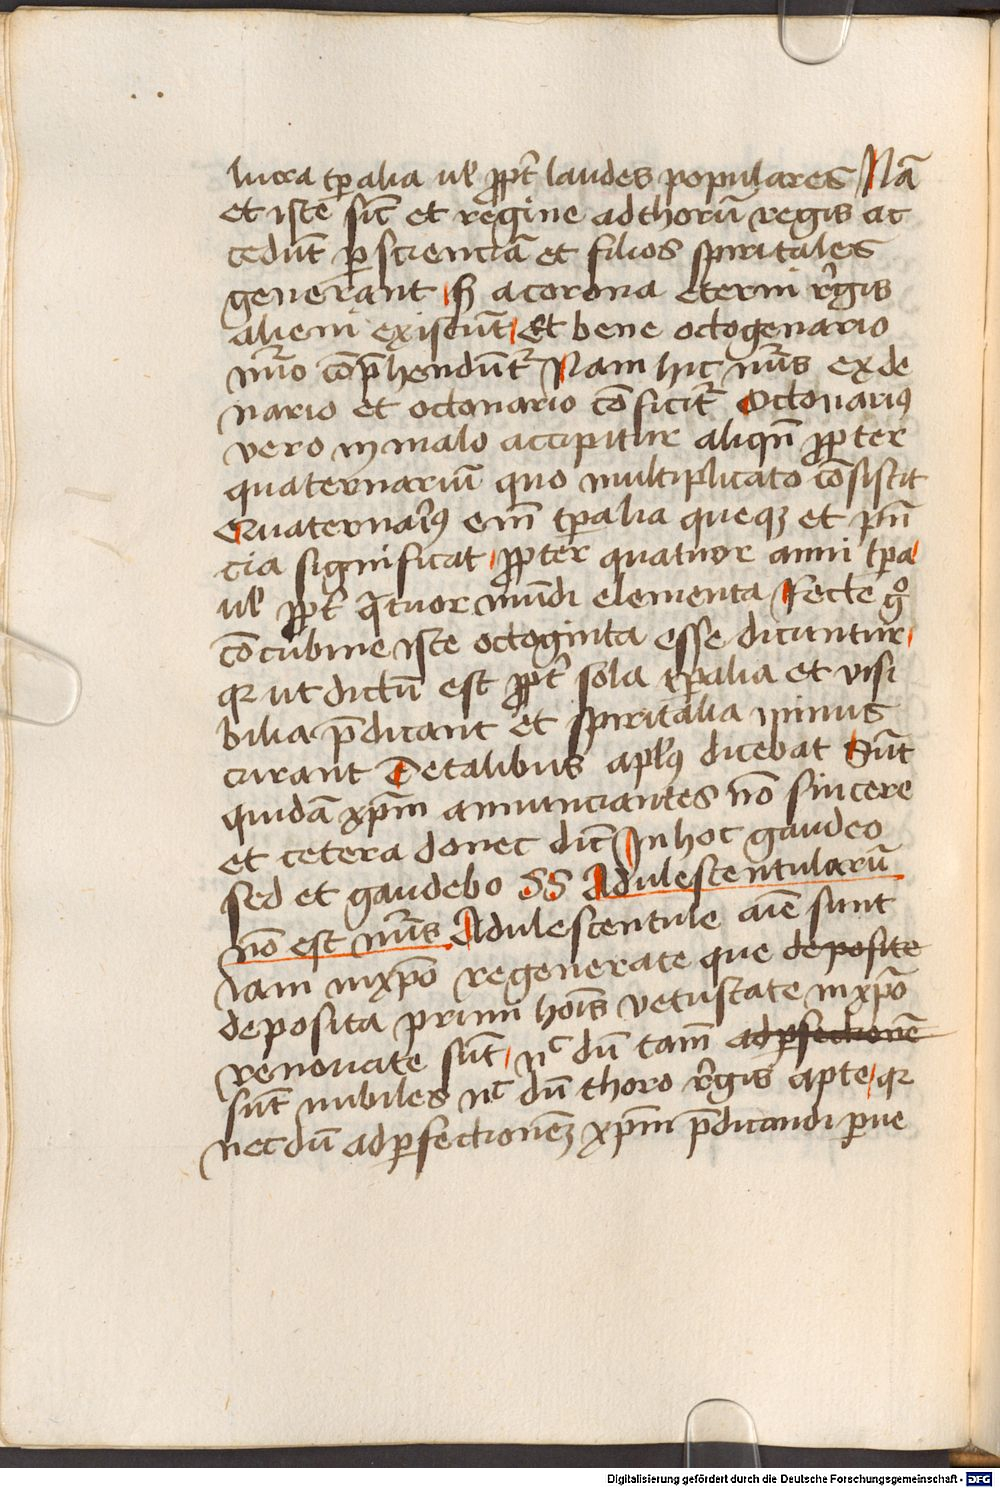 lucra tp̲alia ul̕ ꝓpt̕ laudes populares Nā
et iste sic̄ et regine ad thorū regis ac
cedūt ꝑ scienciā et filios spiritales
generant sꝫ a corona eterni r̕gis
alieni existūt Et bene octogenario
nūo cōp̄hendūt̕ Nam hic nūs ex de
nario et octonario cōficit̕ Octonariꝰ
vero in malo accipitur aliqn̄ ꝓpter
quaternariū quo multiplicato cōsistit
Quaternariꝰ em̄ tp̲alia queqꝫ et p̄n̄
cia significat ꝓpter quatuor anni tp̲a
ul̕ ꝓpt̕ qͣtuor mūdi elementa Recte gͦ
cōcubine iste octoginta esse dicuntur
qꝛ ut dictū est ꝓpt̕ sola tp̲alia et visi
bilia p̄dicant et spiritalia minus
curant De talibus apl̕ꝰ dicebat Sūt
quidā xp̄m annunciantes nō sincere
et cetera donec dic̄ In hoc gaudeo
sed et gaudebo SS Adulescentularū
nō est nūs Adulescentule aīe sunt
iam in xp̄o regenerate que deposite
deposita primi hoīs vetustate in xp̄o
renouate sūt nͨ dū tam̄ ad ꝑfectionē
sūt nubiles nͨ dū thoro r̕gis apte qꝛ
necdū ad ꝑfectionem xp̄m p̄dicandi ꝑue
Digitalisierung gefördert durch die Deutsche Forschungsgemeinschaft - DFG